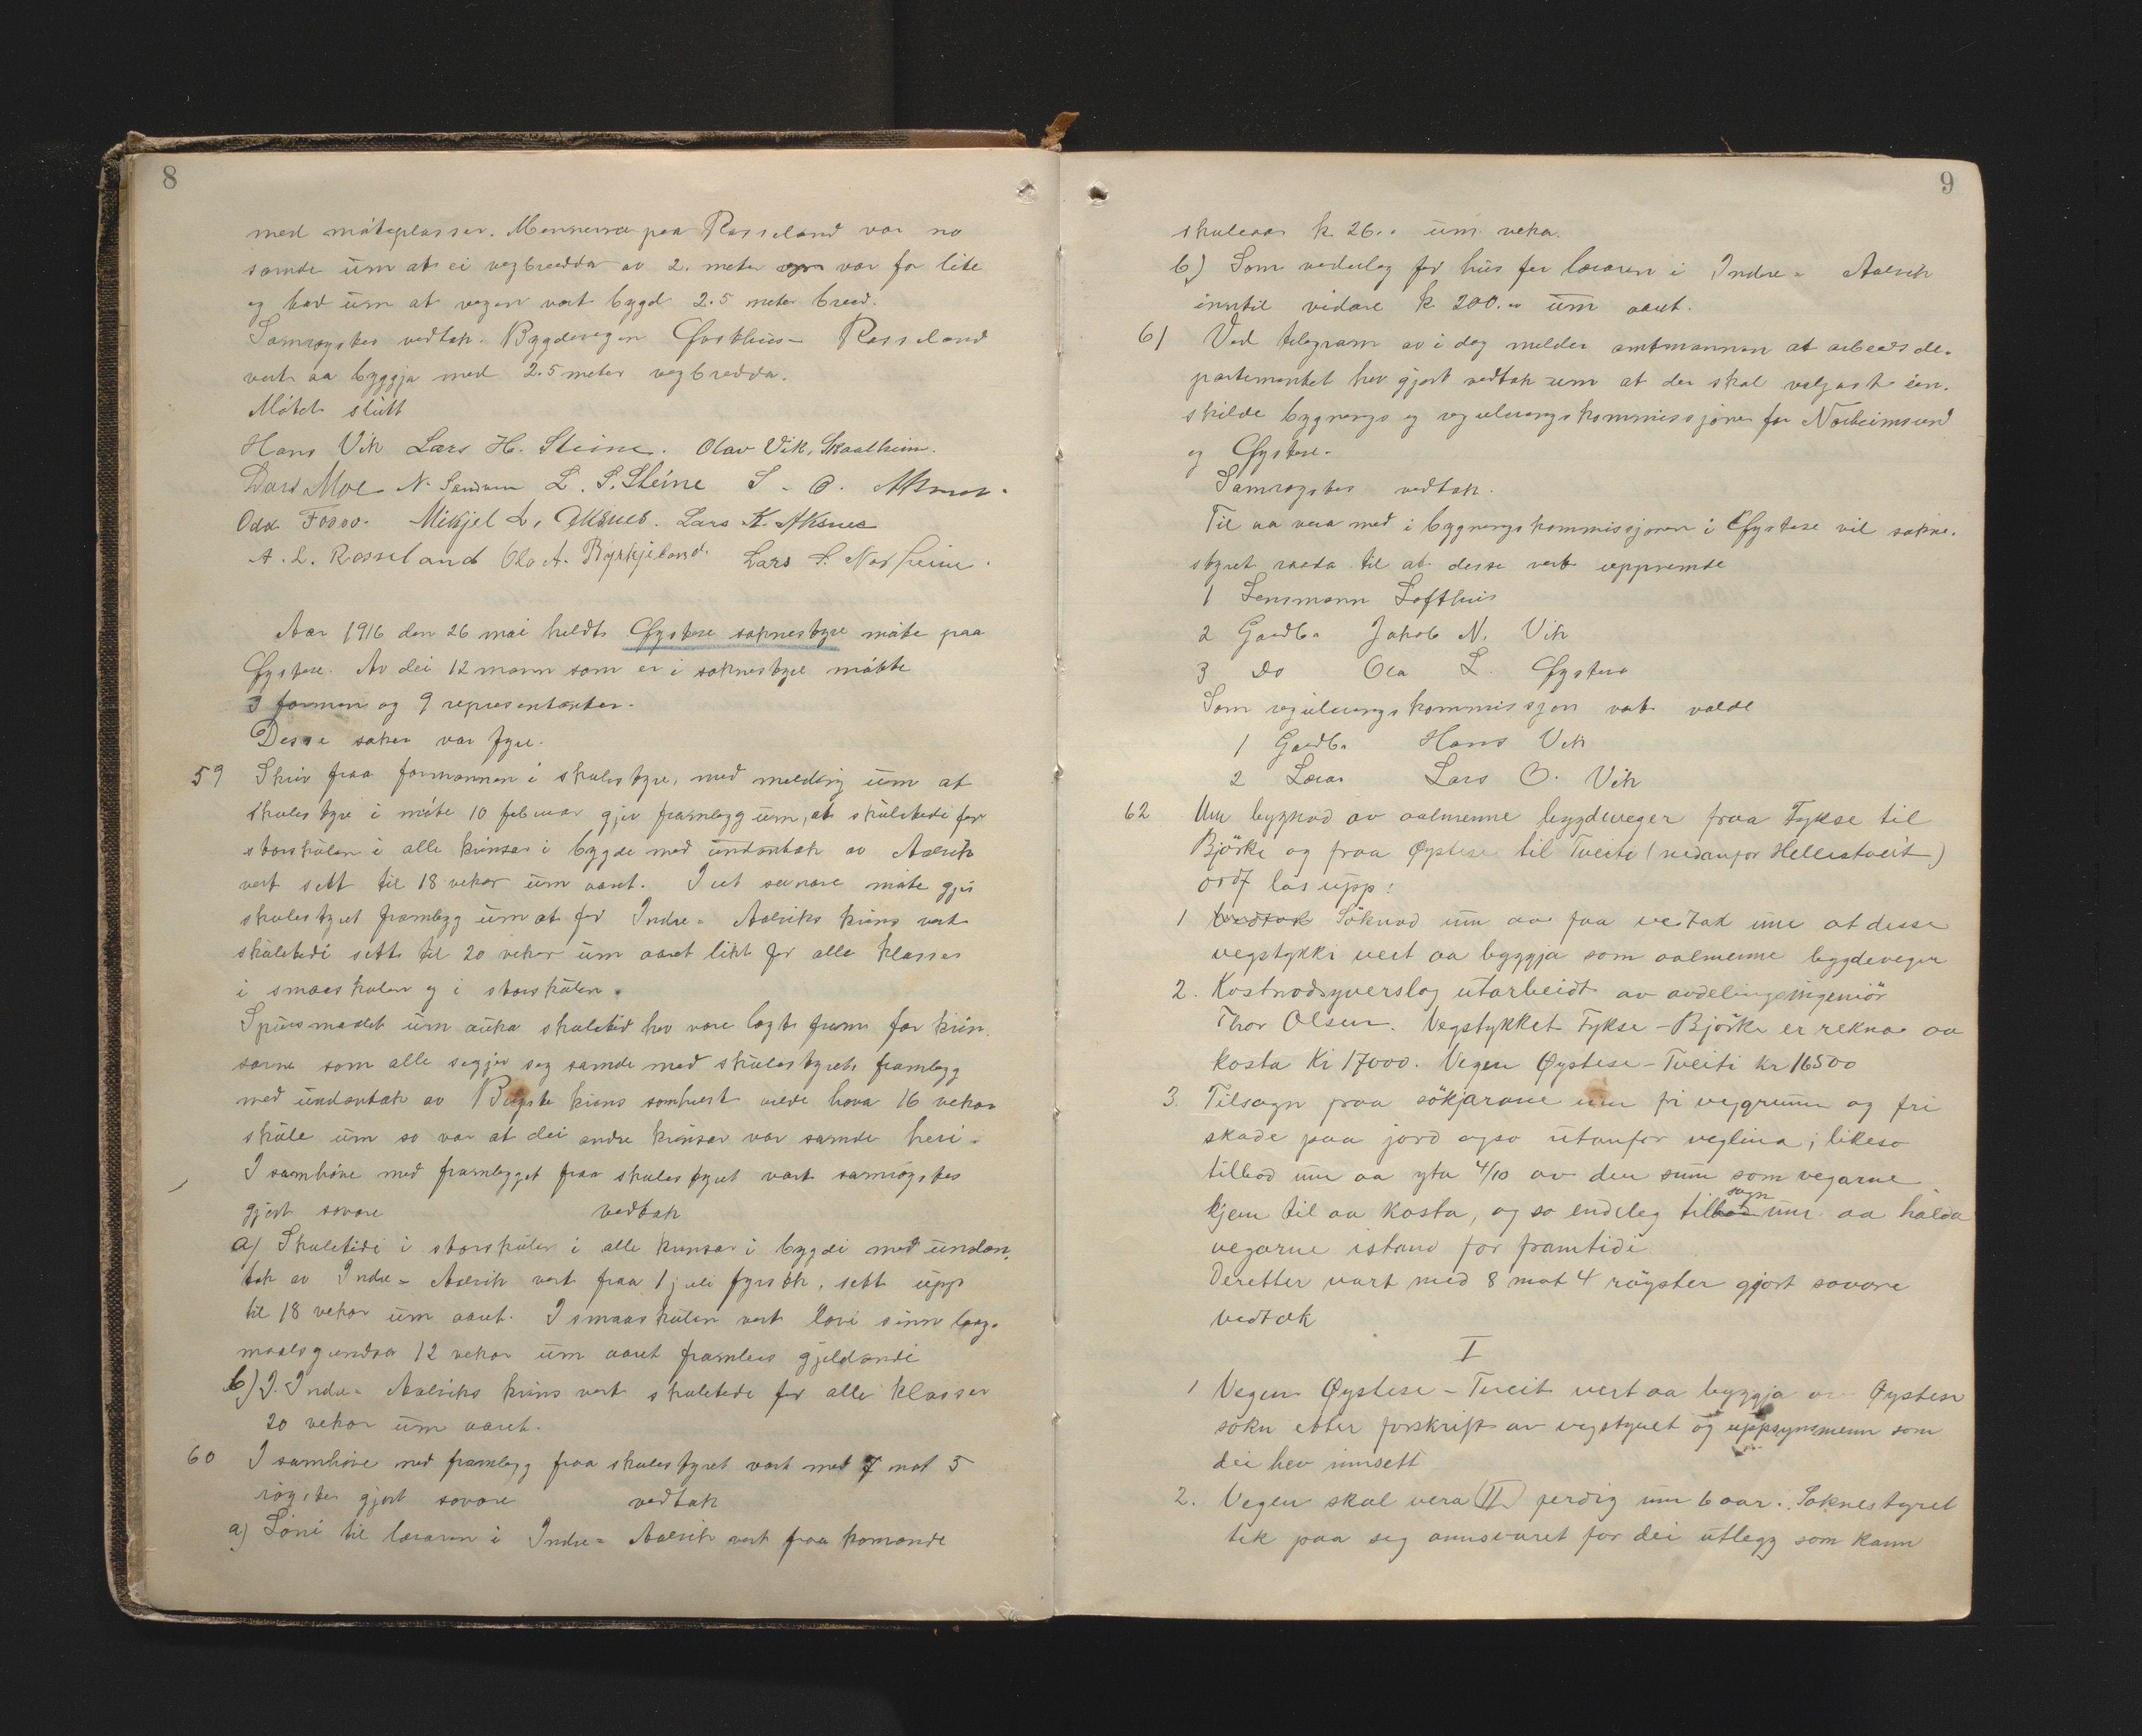 8
med móteplassar. Mennerne paa Rosseland var no
samde um at ei vegbreidda av 2. meter var for lite
og bad um at vegen vart bygd 2.5 meter breid.
Samrøystes vedtak. Bygdevegen Øvsthus - Rosseland
vert aa byggja med 2.5 meter vegbredda.
Mótet slutt
Hans Vik Lars H. Steine. Olav Vik, Skaalheim.
Moe N. Sandven L. S. Steine S. O. Aksnes.
Odd Fosso. Mikjel L. Aksnes. Lars K. Aksnes
A. L. Rosseland Ola A. Byrkjeland. Lars S. Norheim.
Aar 1916 den 26 mai heldt Øystese soknestyre móte paa
Øystese. Av dei 12 mann som er i soknestyret mótte
3 formen og 9 representantar.
Desse saker var fyre.
59 Skriv fraa formannen i skulestyre, med melding um at
skulestyre i móte 10 februar gjer framlegg um, at skuletidi for
storskulen i alle krinsar i bygdi med undantak av Aalvik
vert sett til 18 vekor um aaret. I eit seinare móte gjer
skulestyret framlegg um at for Indre - Aalviks krins vert
skuletidi sett til 20 vekor um aaret likt for alle klassar
i smaaskulen og i storskulen.
Spursmaalet um auka skuletid hev vore lagt fram for krin-
sarne som alle segjer seg samde med skulestyrets framlegg
med undantak av krins somhelst vilde hava 16 vekor
skule um so var at dei andre krinsar var samde heri.
I samhóve med framlegget fraa skulestyret vart samróystes
gjort sovore vedtak
a) Skuletidi i storskulen i alle krinsar i bygdi med undan-
tak av Indre - Aalvik vert fraa 1 juli fyrstk. sett upp
til 18 vekor um aaret. I smaaskulen vert lovi sinn laag-
maalsgrensa 12 vekor um aaret framleis gjeldandi
b) I Indre - Aalviks krins vert skuletidi for alle klasser
20 vekor um aaret.
60 I samhóve med framlegg fraa skulestyret vart med 7 mot 5
róyster gjort sovore vedtak
a) Lóni til læraren i Indre - Aalvik vert fraa komande
9
skuleaar k. 26.. um veka.
b) Som vederlag for hus for læraren i Indre - Aalvik
inntil vidare k. 200.- um aaret.
61 Ved telegram av i dag melder amtmannen at arbeids de-
partementet hev gjort vedtak um at der skal veljast sin-
skilde bygnings og reguleringskommissjoner for Norheimsund
og Øystese.
Samróystes vedtak.
Til aa vera med i bygningskommissjonen i Øystese vil sokne-
styret raada til at desse vert uppnemde
1 Lensmann Lofthus
2 Gardb. Jakob N. Vik
3 Do Ola L. Øystese
Som reguleringskommissjon vart valde
1 Gardb. Hans Vik
2 Lærar Lars O. Vik
62 Um bygnad av aalmenne bygdeveger fraa Fykse til
Björke og fraa Øystese til Tveite (nedanfor Hellestveit)
ordf las upp:
1 vedtak Söknad um aa faa vedtak um at desse
vegstykki vert aa byggja som aalmenne bygdeveger
2. Kostnadsyverslag utarbeidt av avdelingsingeniör
Thor Olsen. Vegstykket Fykse - Björke er rekna aa
kosta Kr 17000. Vegen Øystese - Tveiti kr 16500
3. Tilsagn fraa sökjarane um fri veggrunn og fri
skade paa jord ogso utanfor veglina; likeso
tilbod um aa yta 4/10 av den sum som vegarne
kjem til aa kosta, og so endeleg tilbod sagn um aa halda
vegarne istand for framtidi.
Deretter vart med 8 mot 4 röyster gjort sovore
vedtak
I
1 Vegen Øystese - Tveit vert aa byggja av Øystese
sokn etter forskrift av vegstyret og uppsynsmenn som
dei hev innsett
2. Vegen skal vera II ferdig um 6 aar. Soknestyret
tek paa seg annsvaret for dei utlegg som kann